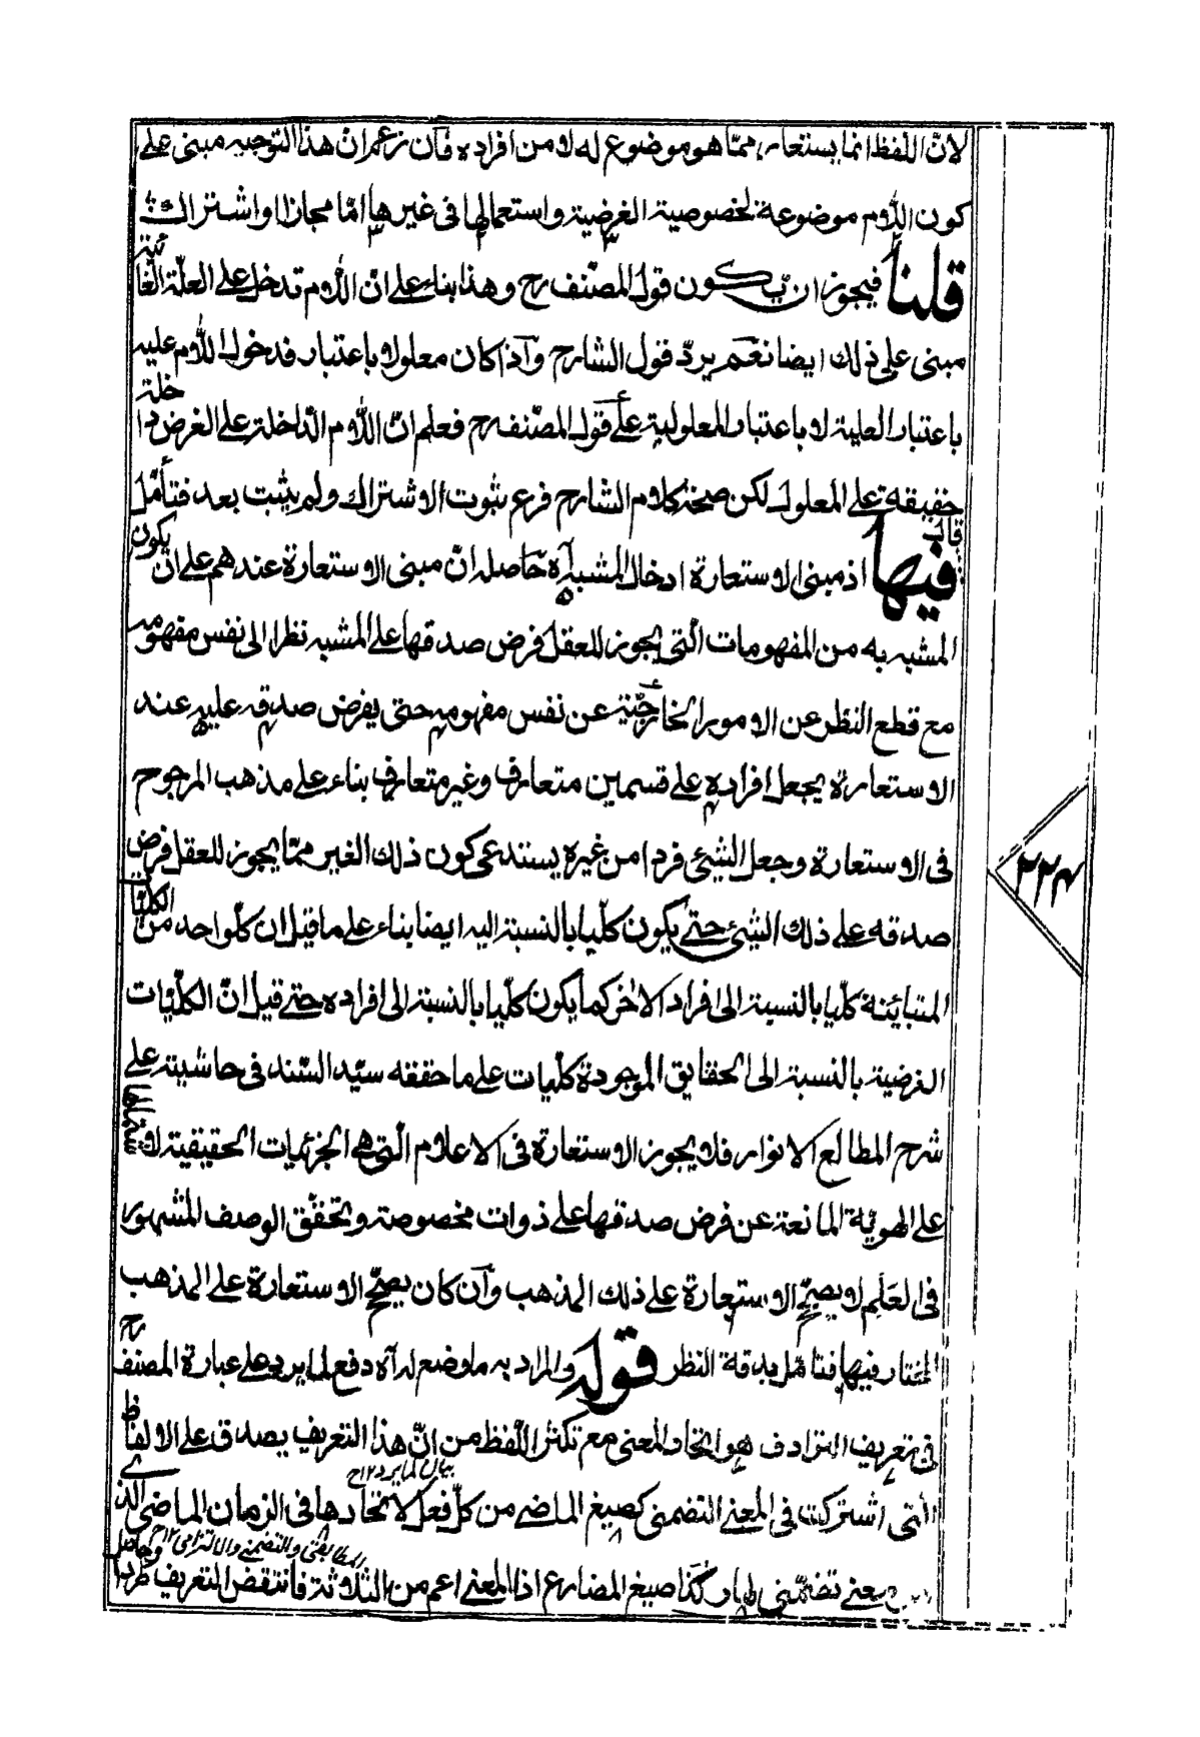 لانّ اللّفظ انما يستعار مما هو موضوع له لا من افراده فان زعم ان هذا التوجيه مبنى على
كون اللام موضوعة لخصوصية الغرضية واستعمالها فى غيرها امّا مجاز او اشتراك
قلنا فيجوز ان يكون قول المصنف رح وهذا بناء على انّ اللام تدخل على العلّة الغائية
مبنى على ذلك ايضا نعم يردّ قول الشارح واذا كان معلولا باعتبار فدخول اللام عليه
باعتبار العلية لا باعتبار المعلولية على قول المصنف رح فعلم انّ اللام الدّاخلة على الغرض داخلة
حقيقة على المعلول لكن صحة كلام الشارح فرع ثبوت الاشتراك ولم يثبت بعد فتأمّل
قال فيها اذ مبنى الاستعارة ادخال المشبه آه حاصله انّ مبنى الاستعارة عندهم على ان يكون
المشبه به من المفهومات الّتى يجوز للعقل فرض صدقها على المشبه نظرا الى نفس مفهومه
مع قطع النظر عن الامور الخارجيّة عن نفس مفهومه حتى يفرض صدقه عليه عند
الاستعارة بجعل افراده على قسمين متعارف وغير متعارف بناء على مذهب المرجوح
فى الاستعارة وجعل الشيئ فردا من غيره يستدعى كون ذلك الغير ممّا يجوز للعقل فرض
صدقه على ذلك الشيئ حتى يكون كلّيا بالنسبة اليه ايضا بناء على ما قيل ان كلّ واحد من الكليات
المتبائنة كلّيا بالنسبة الى افراد الاخر كما يكون كلّيا بالنسبة الى افراده حتى قيل انّ الكلّيات
الفرضية بالنسبة الى الحقايق الموجودة كلّيات على ما حققه سيّد السّند فى حاشيته على
شرح المطالع الانوار فلا يجوز الاستعارة فى الاعلام الّتى هى الجزئيات الحقيقية لاشتمالها
على الهويّة المانعة عن فرض صدقها على ذوات مخصوصة وتحقّق الوصف المشهور
فى العلم لا يصحّح الاستعارة على ذلك المذهب وان كان يصحّح الاستعارة على المذهب
المختار فيها فتامّل بدقة النظر قوله والمراد به ما وضع له آه دفع لما يرد على عبارة المصنف رح
فى تعريف الترادف هو اتحاد المعنى مع تكثر اللّفظ من انّ هذا التعريف يصدق على الالفاظ
الّتى اشتركت فى المعنى التضمنى كصيغ الماضى من كلّ فعل لاتحادها فى الزمان الماضى الذى
بيان لما يرد ١٢ ح
معنى تضمّنى لها وكذا صيغ المضارع اذ المعنى اعم من الثلاثة فانتقض التعريف طردا وحاصل
المطابقى والتضمنى والالتزامى ١٢ ح
٢٢٤